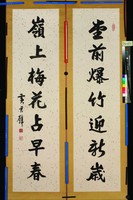 堂前爆竹迎新歲
嶺上梅花占早春